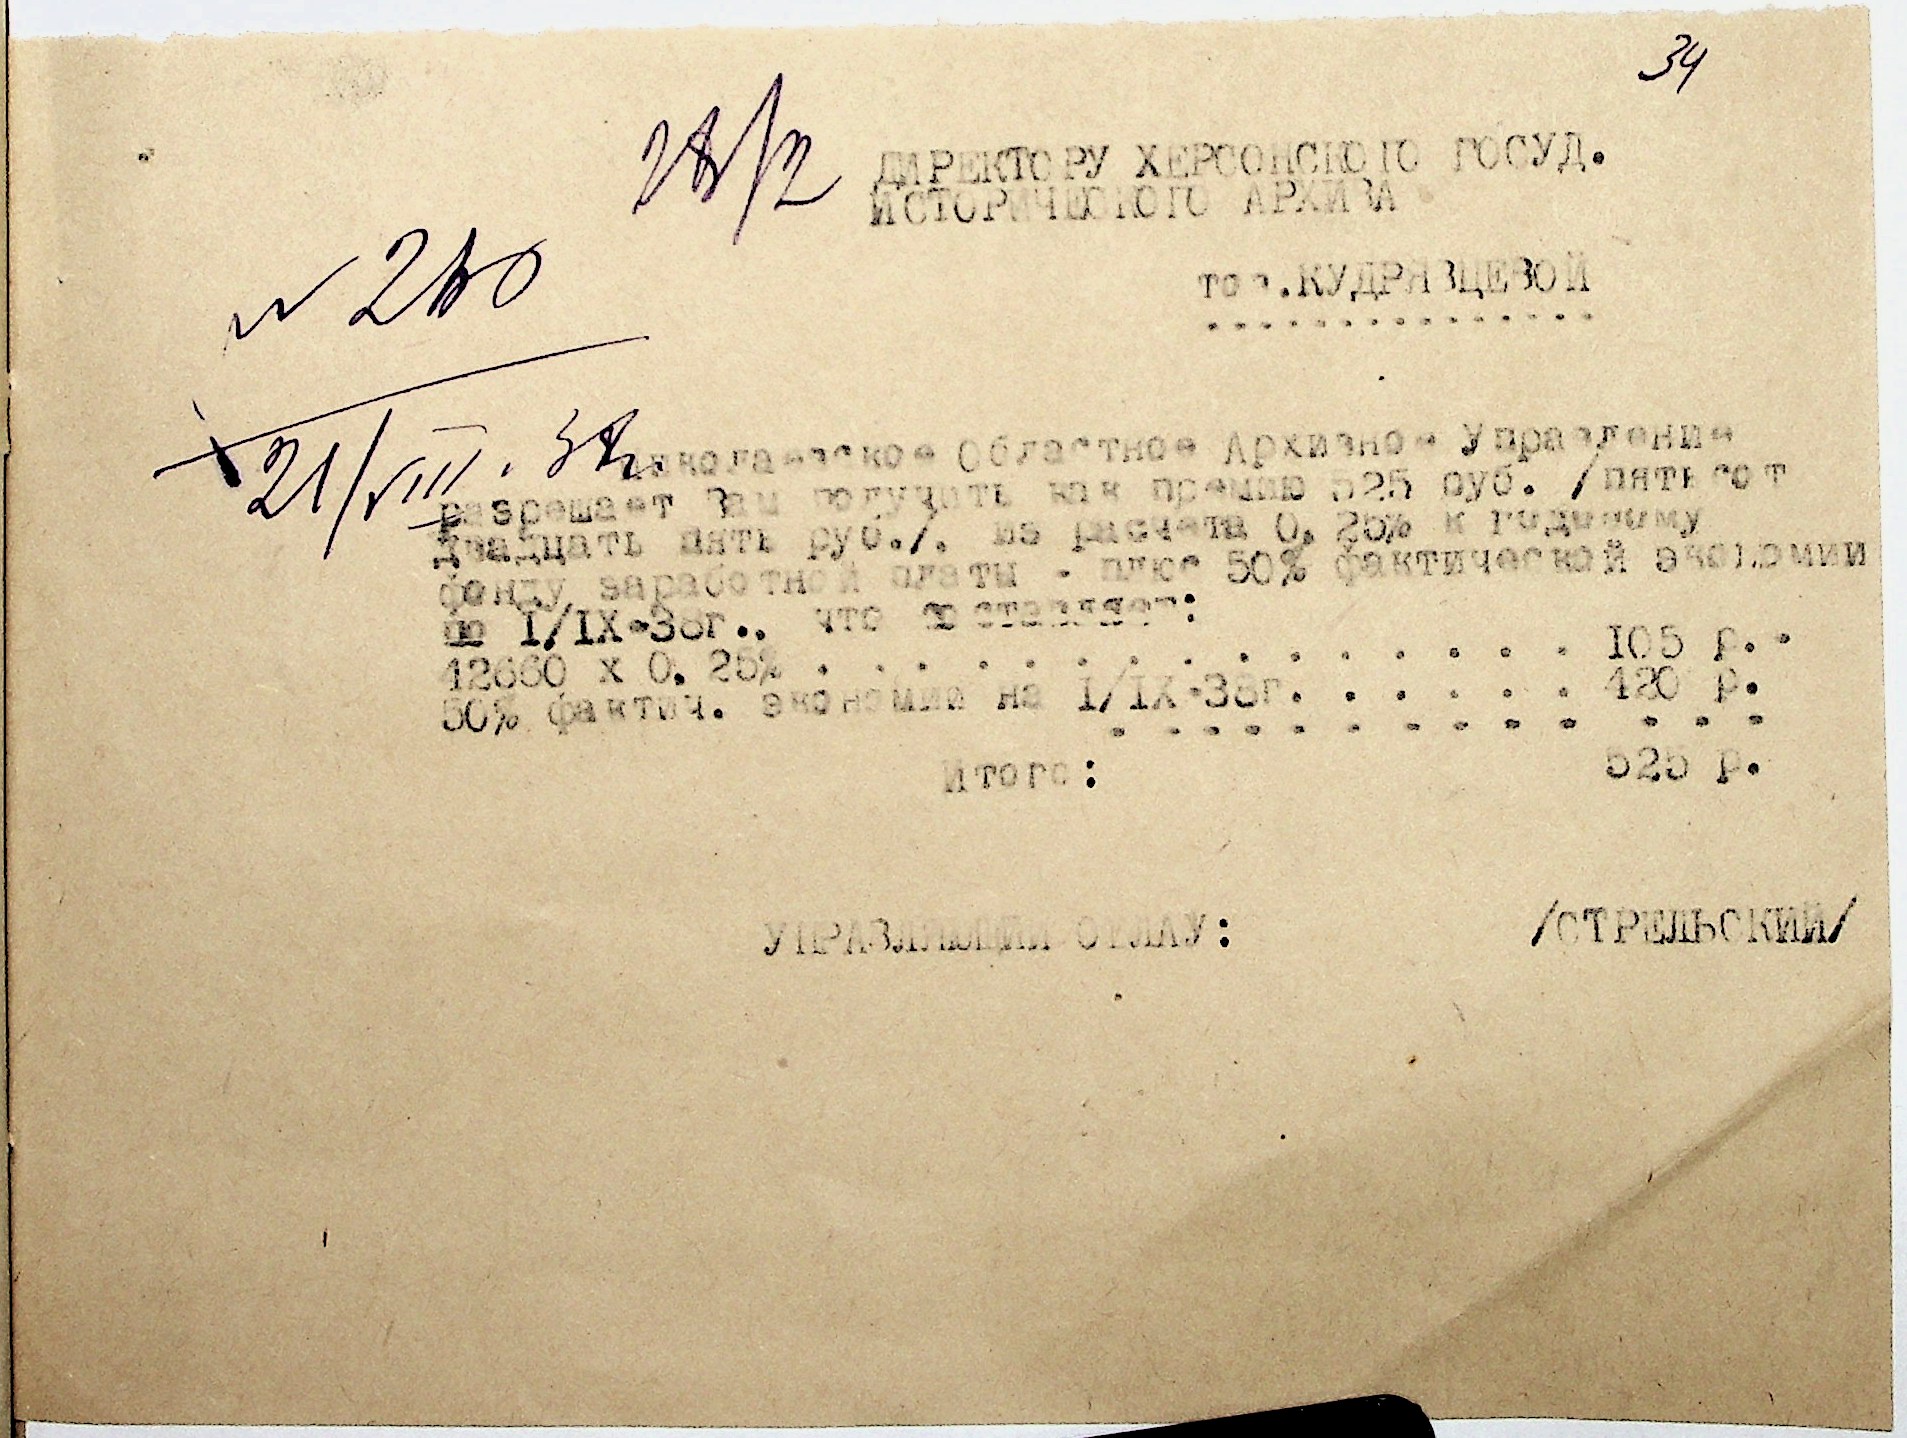 34
28/2
ДИРЕКТОРУ ХЕРСОНСКОГО ГОСУД.
ИСТОРИЧЕСКОГО АРХИВА
тов.КУДРЯВЦЕВОЙ
№
21/VIII.38г.
Николаевское Областное Архивное Управление
разрешает Вам получить как премию 525 руб. /пятьсот
двадцать пять руб./. из расчета 0,25% к годовому
фонду заработной платы - плюс 50% фактической экономии
по I/IX-38г.. что составляет:
42660 х 0,25% . . . . . . . . . . . . . . . 105 р.-
50% фактич. экономии на I/IX-38г. . . . . . . 420 р.
Итого: 525 р.
УПРАВЛЯЮЩИЙ ОБЛАУ: /СТРЕЛЬСКИЙ/